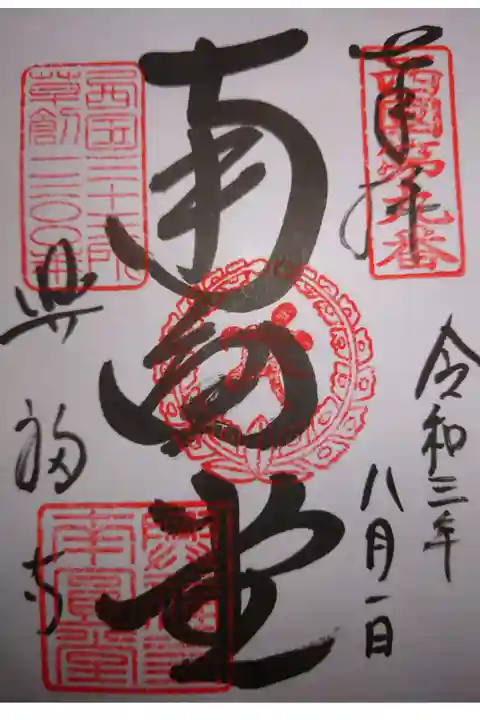 奉拝
西國第九番
令和三年
八月一日
南円堂
西国三十三所
草創一三〇〇年
興福寺
興福寺
南圓堂